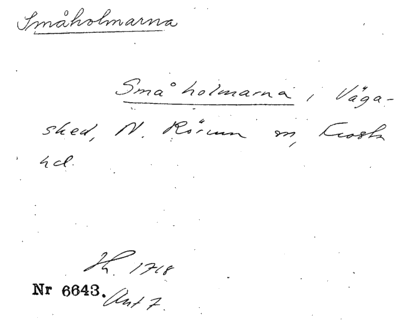 Småholmarna
Små holmarna i Våga-
sked, N. Rörum sn, Frosta
hd.
Hh. 1718
Nr 6643. Ant 7.